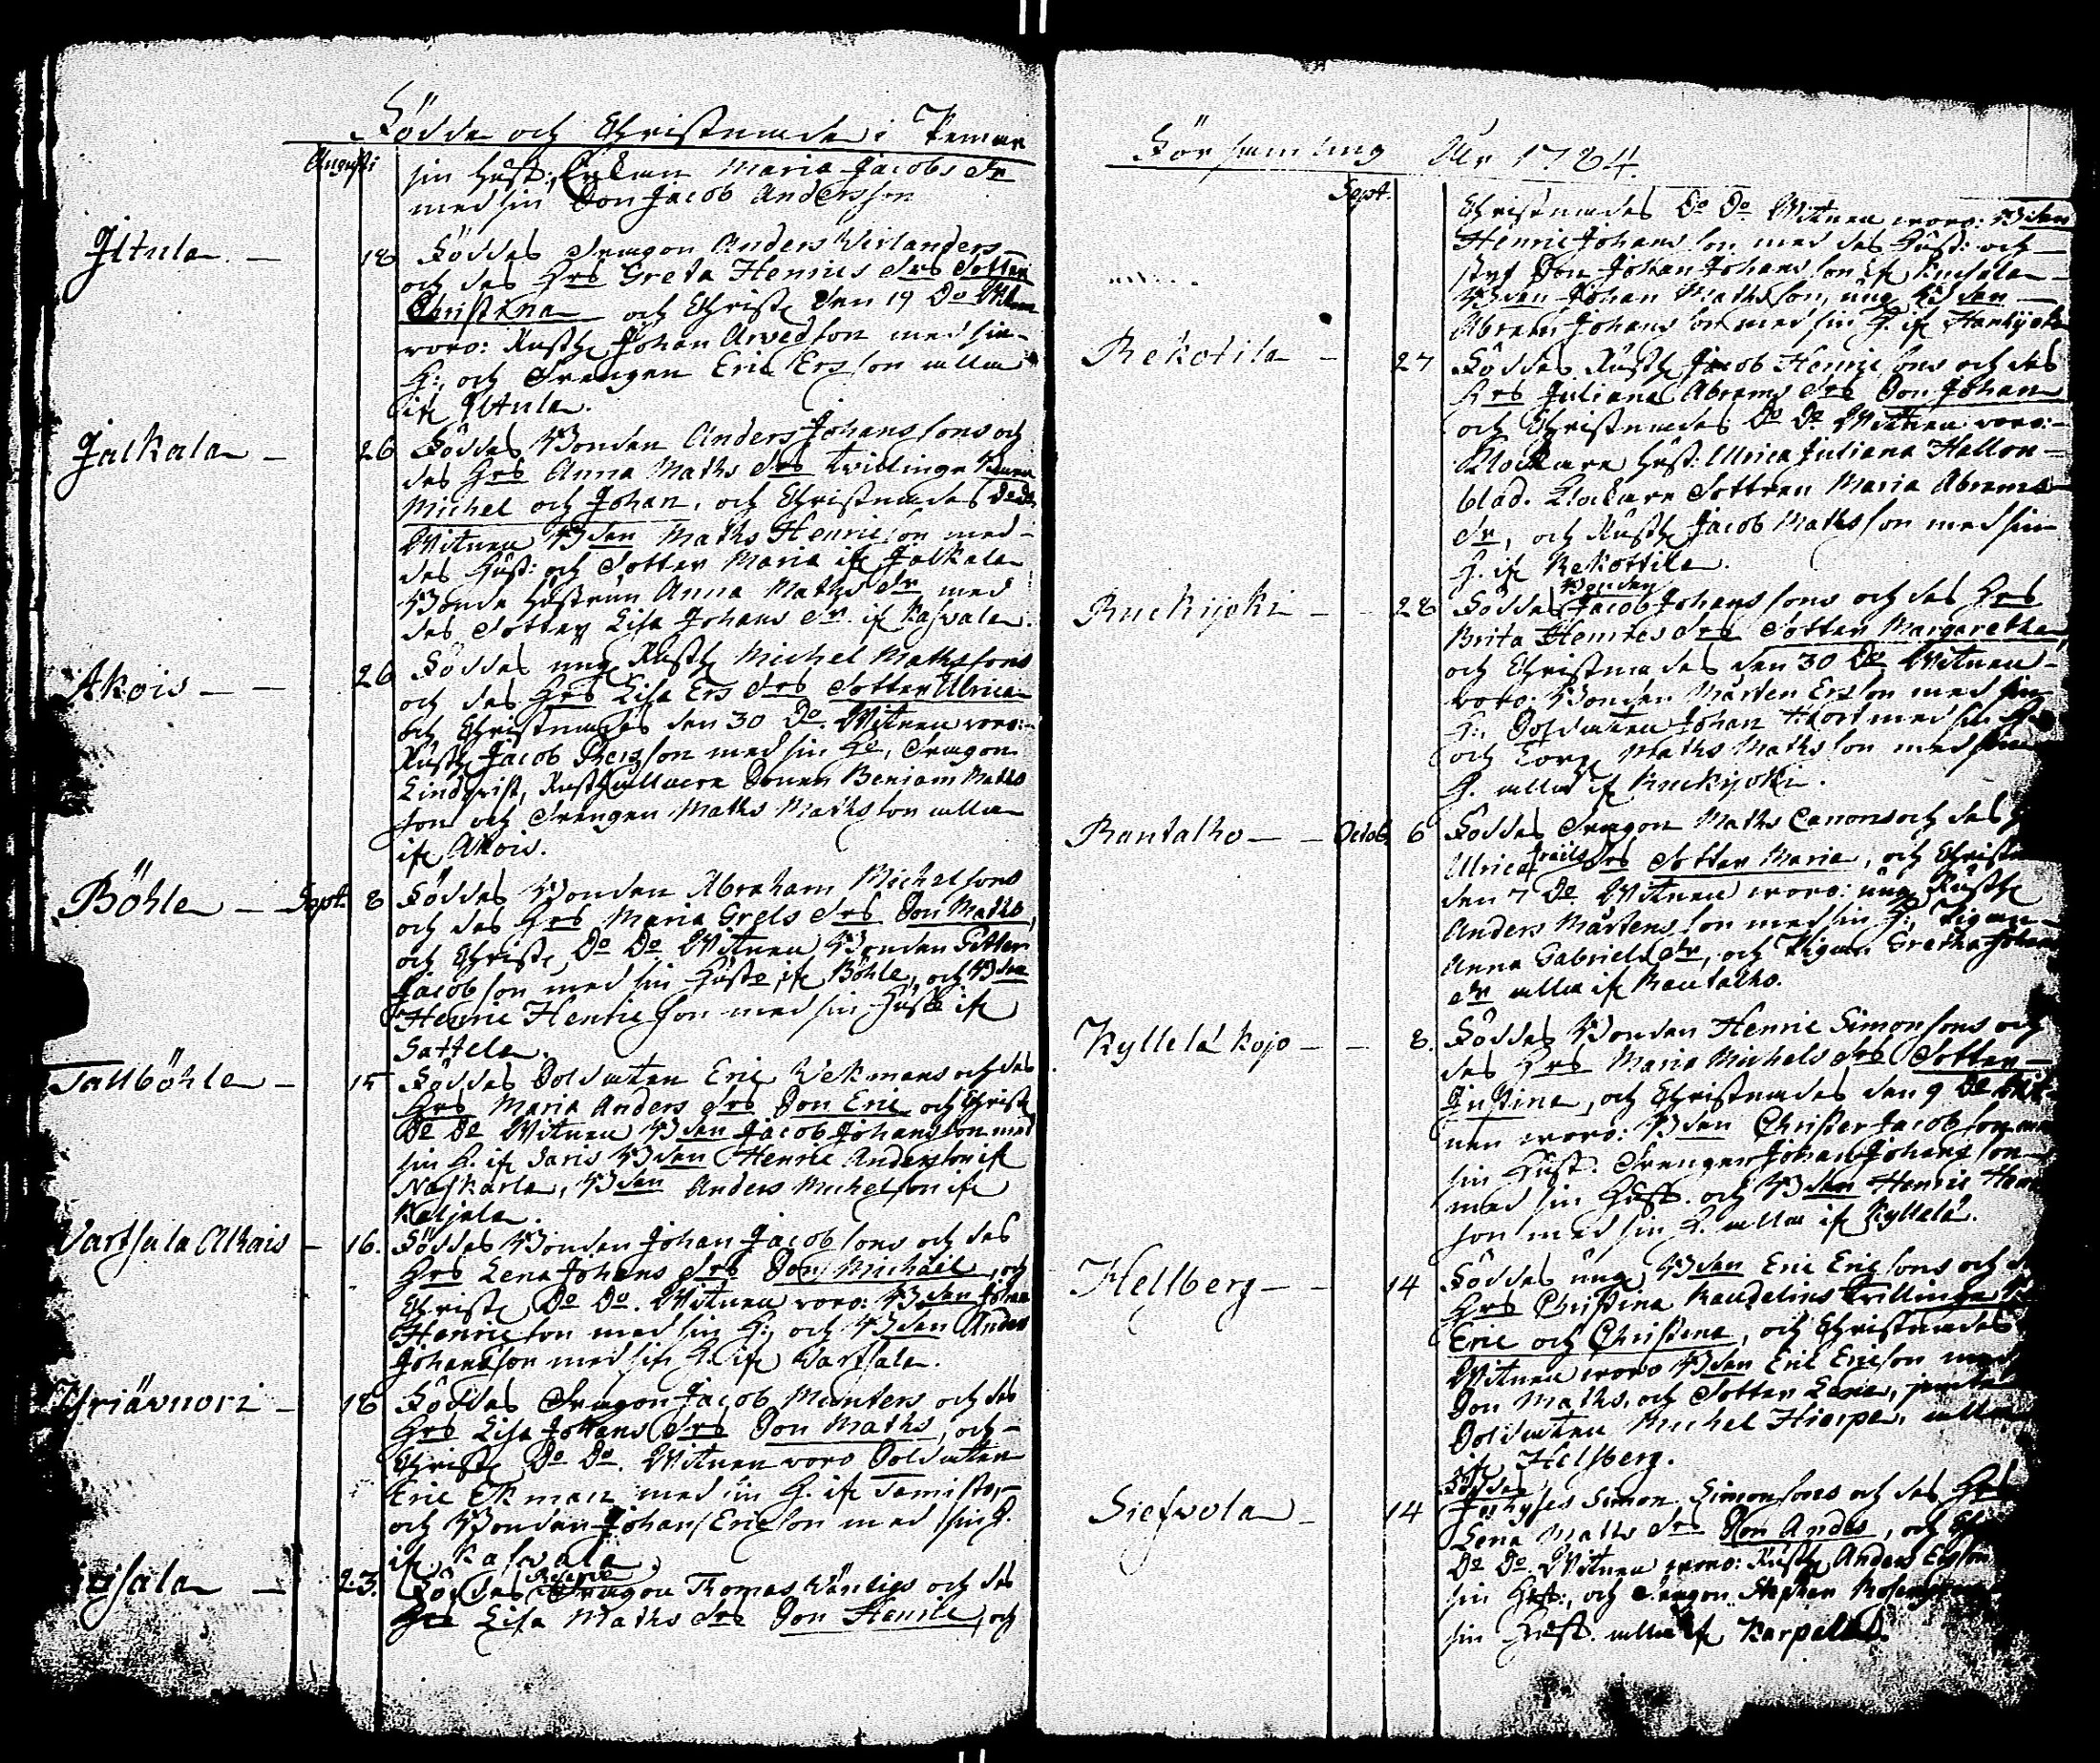 Födde och Christnade i Pemar
Augusti
sin Hust:, Enkan Maria Jacobs dr
med sin Son Jacob Andersson
Iltula — 18 Föddes Dragon Anders Wirlanders
och des Hrs Greta Henrics drs Dotter
Christina och Christ. den 19 Do Witnen
voro: Rusth. Johan Arvedson med sin
H:, och Drengen Eric Ersson alla
ifr. Iltula.
Jalkala — 26 Föddes Bonden Anders Johanssons och
des Hrs Anna Maths drs Tvillinge Barn
Michel och Johan, och Christnades Do Do
Witnen Bden Maths Henricson med
des Hust: och Dotter Maria ifr. Jalkala
Bonde Hustrun Anna Maths dr med
des Dotter Lisa Johans dr. ifr. Kasvala.
Akois — — 26 Föddes ung. Rusth. Michel Mathssons
och des Hrs Lisa Ers drs Dotter Ulrica
och Christnades den 30 Do. Witnen voro:
Rusth. Jacob Bengson med sin H:, Dragon
Lindqvist, Rusthållare Sonen Benjam Maths
son och Drengen Maths Mathsson alla
ifr. Akois.
Böhle — Sept. 8 Föddes Bonden Abraham Michelsons
och des Hrs Maria Grels drs Son Maths,
och Christ. Do Do Witnen Bonden Petter
Jacobson med sin Husto ifr. Böhle, och Bden
Henric Henricson med sin Hust ifr.
Sattela.
Tallböhle — 15 Föddes Soldaten Eric Wekmans och des
Hrs Maria Anders drs Son Eric och Christ.
Do Do Witnen Bden Jacob Johansson med
sin H. ifr. Saris Bden Henric Anderson ifr.
Naskarla, Bden Anders Michelson ifr.
Kaljala.
Vartsala Alhais — 16. Föddes Bonden Johan Jacobsons och des
Hrs Lena Johans drs Son Michäel, och
Christ. Do Do. Witnen voro: Bden Johan
Henricson med sin H:, och Bden Anders
Johansson med sin H. ifr. Vartsala.
— 18 Föddes Dragon Jacob Munters och des
Hrs Lisa Johans drs Son Maths, och
Christ. Do Do. Witnen voro Soldaten
Eric Ekman med sin H. ifr. Tamisto,
och Bonden Johan Ericson med sin H.
ifr. Kasvala.
— 23. Föddes Dragon Thomas Vänligs och des
Hrs Lisa Maths drs Son Henric, och
Församling Åhr 1784.
Sept.
Christnades Do Do Witnen voro: Bden
Henric Johansson med des Hust: och
styf Son Johan Johansson ifr.
Bden Johan Mathsson, ung Bden
Abram Johansson med sin H. ifr.
Rekotila — 27 Föddes Rusth. Jacob Henricsons och des
Hrs Juliana Abrams drs Son Johan
och Christnades Do Do Witnen voro:
Klockare Hust. Ulrica Juliana Hallon-
blad. Klockare Dottren Maria Abrams
dr, och Rusth. Jacob Mathsson med sin
H. ifr. Rekottila.
Ruckijoki — — 28 Föddes Bonden Jacob Johanssons och des Hrs
Brita Henrics drs Dotter Margaretha,
och Christnades den 30 Do Witnen
voro. Bonden Mårten Ersson med sin
H:, Soldaten Johan Kort med sin H.
och Torp. Maths Mathsson med sin
H. alla ifr. Ruckijoki.
Rantalho — — Octob. 6 Föddes Dragon Maths Canons och des
Ulrica drs Dotter Maria, och Christn
den 7 Do Witnen voro: ung Rusth.
Anders Mårtensson med sin H:, Pigan
Anna Gabriels dr, och Pigan Gretha Johans
dr alla ifr. Rantalho.
Kyllelä kojo — — 8. Föddes Bonden Henric Simonsons och
des Hrs Maria Michels drs Dotter
Justina, och Christnades den 9 Do Wit-
nen voro: Bden Christer Jacobson med
sin Hust. Drengen Johan Johansson
med sin Hust. och Bden Henric Henric
son med sin H. alla ifr. Kyllelä.
Hellberg — — 14 Föddes ung. Bden Eric Ericsons och
Hrs Christina Randelins Tvillinge
Eric och Christina, och Christnades
Witnen voro Bden Eric Ericson med
Son Maths, och Dotter Lena, jemte
Soldaten Michel Hierpe, alla
ifr. Hellberg.
Siefvola — 14 Föddes Simon Simonsons och des Hrs
Lena Maths drs Son Anders, och
Do Do Witnen voro: Rusth. Anders Ersson
sin Hust:, och Dragon Stephan
sin Hust. alla ifr. Karpela.